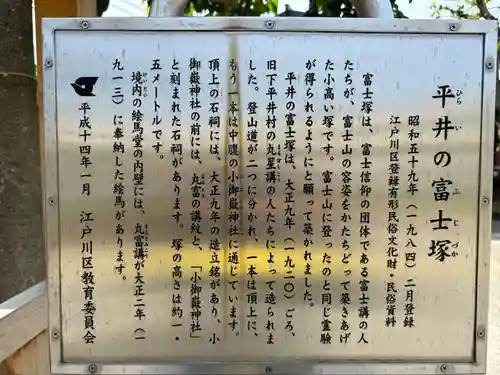 平井の富士塚
ひらいのふじづか
昭和五十九年（一九八四）二月登録
江戸川区登録有形民俗文化財・民俗資料
富士塚は、富士信仰の団体である富士講の人
たちが、富士山の容姿をかたちどって築きあげ
た小高い塚です。富士山に登ったのと同じ霊験
が得られるようにと願って築かれました。
平井の富士塚は、大正九年（一九二〇）ごろ、
旧下平井村の丸星講の人たちによって造られま
した。登山道が二つに分かれ、一本は頂上に、
もう一本は中腹の小御嶽神社に通じています。
頂上の石祠には、大正九年の造立銘があり、小
御嶽神社の前には、丸富の講紋と、「小御嶽神社」
と刻まれた石祠があります。塚の高さは約一・
五メートルです。
境内の絵馬堂の内壁には、丸富講が大正二年（一
九一三）に奉納した絵馬があります。
平成十四年一月　江戸川区教育委員会